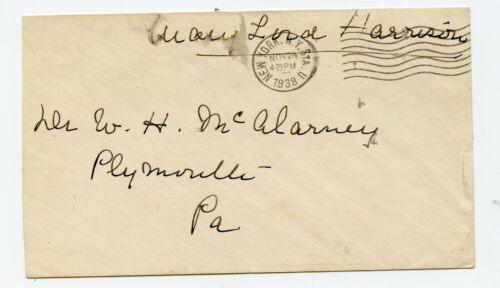 Mary Lord Harrison
NEW YORK, N.Y. STA. U
NOV 24
4 PM
1938
Dr W. H. McAlarney
Plymouth
Pa